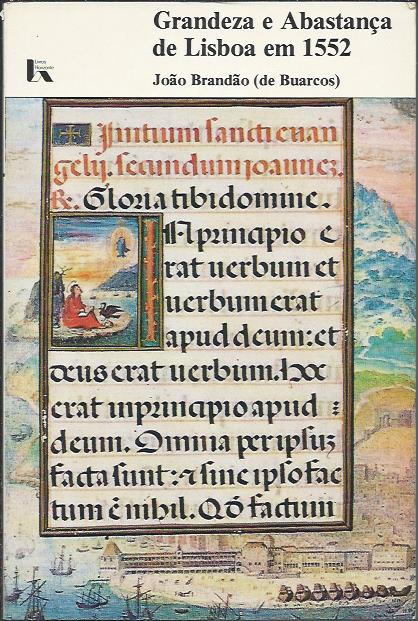 Grandeza e Abastança
de Lisboa em 1552
João Brandão (de Buarcos)
Livros
Horizonte
Initium sancti euan
gelij. secundum ioannez.
R. Gloria tibi domine.
In principio e
rat uerbum et
uerbum erat
apud deum: et
deus erat uerbum. hoc
erat in principio apud :
deum. Omnia per ipsuz
facta sunt: et sine ipso fac
tum ē nihil. Qđ factum